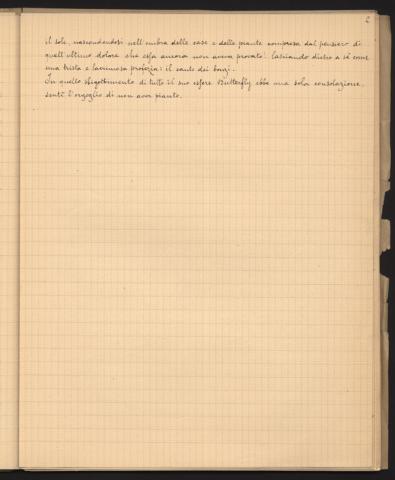 2
il sole, nascondendosi nell'ombra delle case e delle piante compresa dal pensiero di
quell'ultimo dolore che essa ancora non aveva provato. lasciando dietro a sè come
una trista e lacrimosa profezia: il canto dei bonzi.
In quello sbigottimento di tutto il suo essere Butterfly ebbe una sola consolazione.
sentì l'orgoglio di non aver pianto.